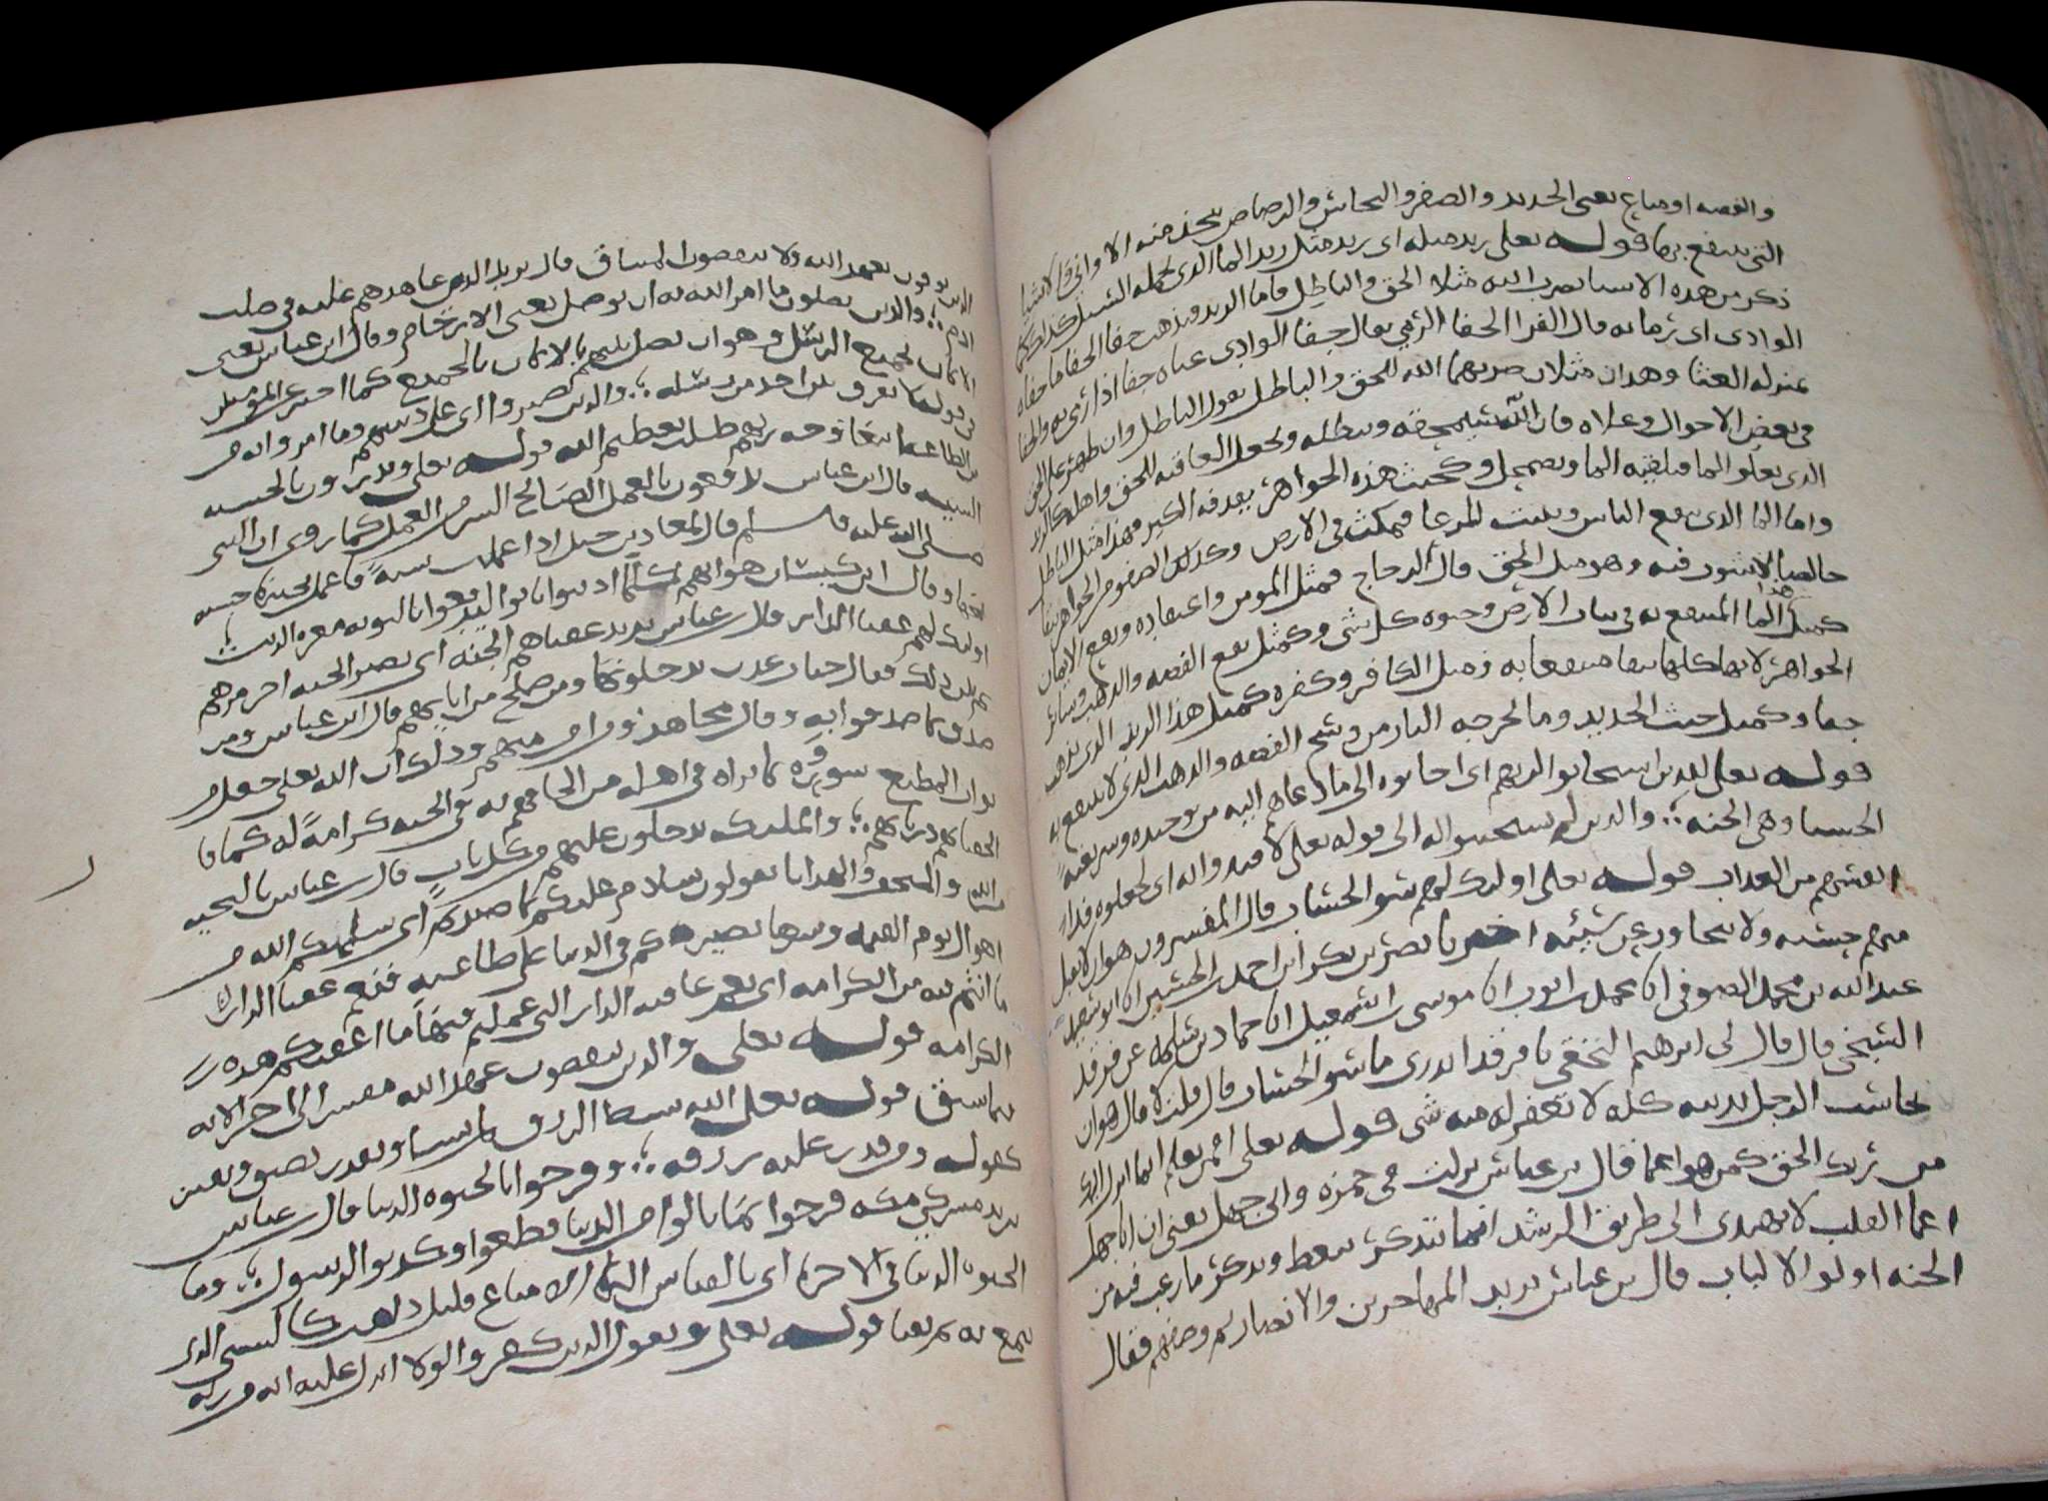 والفضه او متاع يعنى الحديد والصفر والنحاس والرصاص يتخذ منه الاوانى والاشيا
التى ينتفع بها قوله تعلى زبد مثله اى زبد مثل زبد الما الذى يحمله السيل كذلك كما
ذكر من هذه الاشيا يضرب الله مثلا الحق والباطل فاما الزبد فيذهب جفا الجفا ما جفاه
الوادى اى رما به قال الفرا الجفا الرمي يقال جفا الوادى غثاه جفا اذا رمى به والجفا
بمنزله الغثا وهذان مثلان ضربهما الله للحق والباطل يقول الباطل وان ظهر على الحق
فى بعض الاحوال وعلاه فان الله سيمحقه ويبطله ويجعل العاقبه للحق واهله كالزبد
الذى يعلو الما فيلقيه الما ويضمحل وكخبث هذه الجواهر يقذفه الكير فهذا مثل الباطل
واما الما الذى ينفع الناس وينبت المرعا فيمكث فى الارض وكذلك الصفو من الجواهر يبقا
خالصا لا شوب فيه وهو مثل الحق قال الزجاج فمثل المومن واعتقاده ونفع الايمان
كمثل هذا الما المنتفع به فى نبات الارض وحيوه كل شى وكمثل نفع الفضه والذهب وسائر
الجواهر لانها كلها تبقا منتفعا به ومثل الكافر وكفره كمثل هذا الزبد الذى يذهب
جفا وكمثل خبث الحديد وما تخرجه النار من وسخ الفضه والذهب الذى لا ينتفع به
قوله تعلى للذين استجابوا لربهم اى اجابوه الى ما دعاهم اليه من توحيده وشريعته
الحسنا وهى الجنه والذين لم يستجيبوا له الى قوله تعلى لافتدوا به اى لجعلوه فدا
انفسهم من العذاب قوله تعلى اولئك لهم سو الحساب قال المفسرون هو ان لا تقبل
منهم حسنه ولا يتجاوز عن سيئه اخبرنا نصر بن بكر ابن احمد الحسين انا ابو سعيد
عبد الله بن محمد الصوفى انا محمد بن ايوب انا موسى بن اسمعيل انا حماد بن سلمه عن فرقد
السبخي قال قال لى ابرهيم النخعي يا فرقد اتدرى ما سو الحساب قال قلت لا قال هو ان
يحاسب الرجل بذنبه كله لا يغفر له منه شى قوله تعلى افمن يعلم انما انزل اليك
من ربك الحق كمن هو اعما قال بن عباس نزلت فى حمزه وابى جهل يعنى ان ابا جهل
اعما القلب لا يهتدى الى طريق الرشد انما يتذكر يتعظ ويذكر ما رغب فيه من
الجنه اولوا الالباب قال بن عباس يريد المهاجرين والانصار ثم وصفهم فقال
الذين يوفون بعهد الله ولا ينقضون الميثاق قال يريد الذى عاهدهم عليه فى صلب
ادم والذين يصلون ما امر الله به ان يوصل يعنى الارحام وقال ابن عباس يعنى
الايمان بجميع الرسل وهو ان يصل بينهم بالايمان بالجميع كما اخبر عن المومنين
فى قوله لا نفرق بين احد من رسله والذين صبروا اى على دينهم وما امروا به من
الطاعه ابتغا وجه ربهم طلب تعظيم الله قوله تعلى ويدرون بالحسنه
السيئه قال ابن عباس يدفعون بالعمل الصالح السى من العمل كما روى ان النبى
صلى الله عليه وسلم قال لمعاذ بن جبل اذا عملت سيئة فاعمل بجنبها حسنه
تمحها وقال ابن كيسان هو انهم كلما اذنبوا تابوا ليدفعوا بالتوبه معره الذنب
اولئك لهم عقبا الدار قال بن عباس يريد عقباهم الجنه اى تصير الجنه اخر امرهم
ثم بين ذلك فقال جنات عدن يدخلونها ومن صلح من ابايهم قال ابن عباس ومن
صدق بما صدقوا به وقال مجاهد ومن امن منهم وذلك ان الله تعلى جعل من
ثواب المطيع سروره بما يراه فى اهله من الحاقهم به فى الجنه كرامة له كما قا
الحقنا بهم ذرياتهم والمليكه يدخلون عليهم من كل باب قال بن عباس بالتحيه
من الله والتحف والهدايا يقولون سلام عليكم بما صبرتم اى سلمكم الله من
اهوال يوم القيمه وشرها بصبركم فى الدنيا على طاعته فنعم عقبا الدار
ما انتم فيه من الكرامه اى نعم عاقبه الدار التى عملتم فيها ما اعقبكم هذه
الكرامه قوله تعلى والذين ينقضون عهد الله مفسر الى اخر الايه
بما سبق قوله تعلى الله يبسط الرزق لمن يشا ويقدر يضيق ويقتر
كقوله ومن قدر عليه رزقه وفرحوا بالحيوه الدنيا قال بن عباس
يريد مشركي مكه فرحوا بما نالوا من الدنيا فطغوا وكذبوا الرسول وما
الحيوه الدنيا فى الاخره اى بالقياس اليها الا متاع قليل ذاهب كالشى الذى
يتمتع به ثم يفنا قوله تعلى ويقول الذين كفروا لولا انزل عليه ايه من ربه